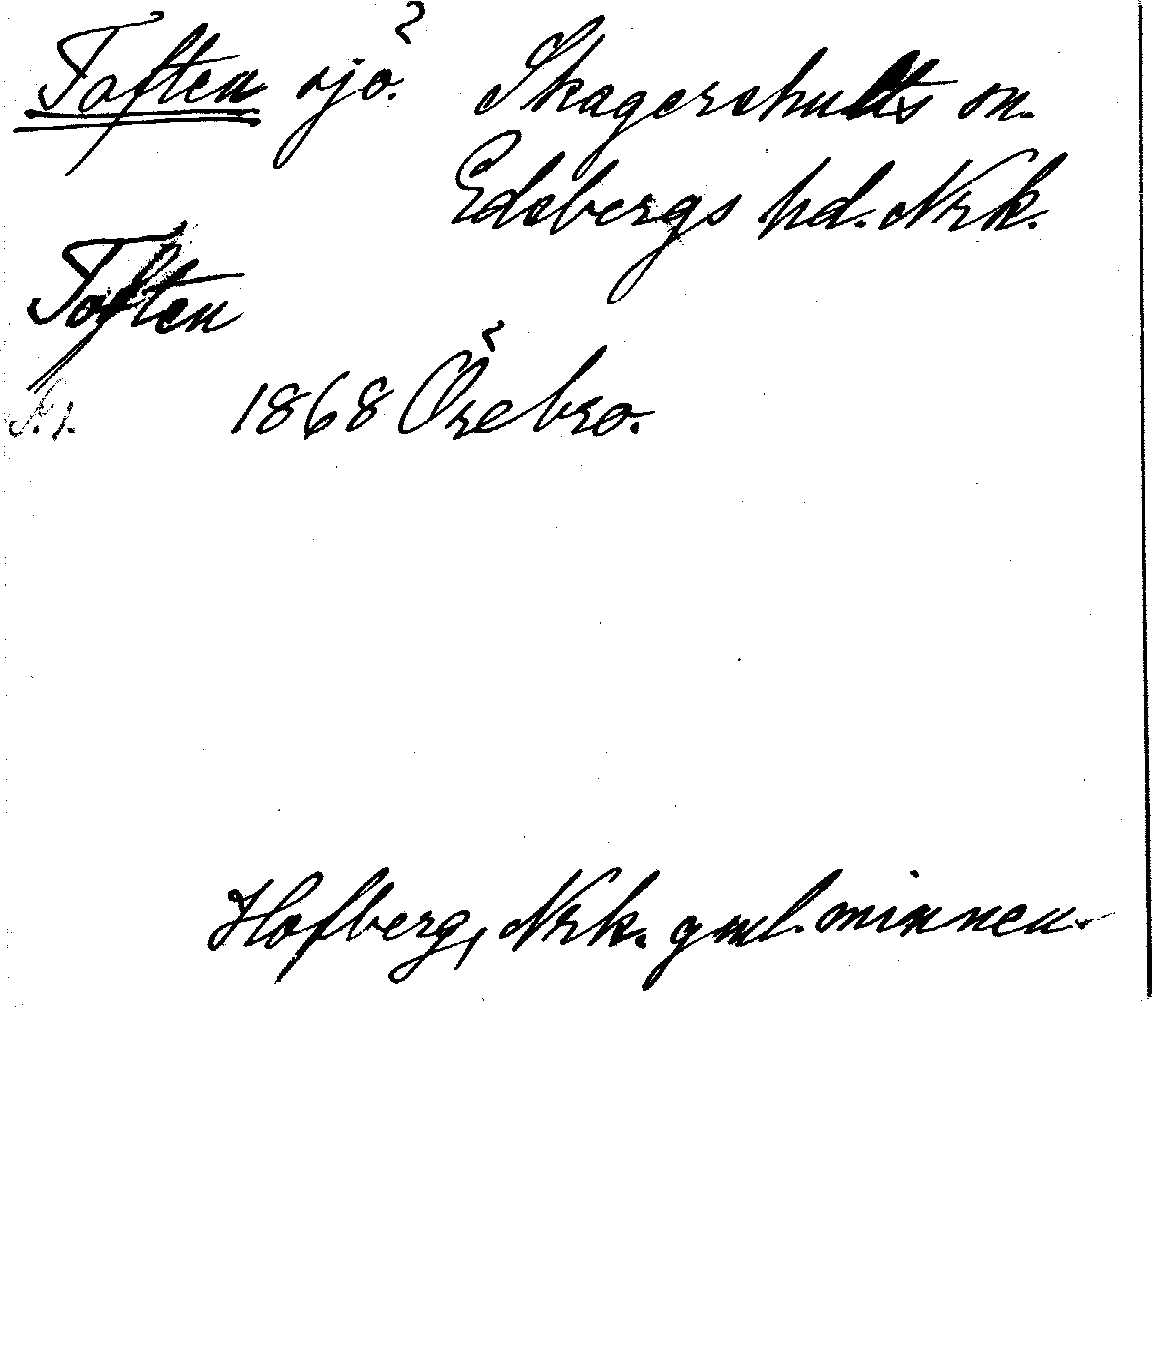 Toften sjö. Skagershults sn.
Edsbergs hd. Nrk.
Toften
1868 Örebro.
Hofberg, Nrk. gml. minnen.